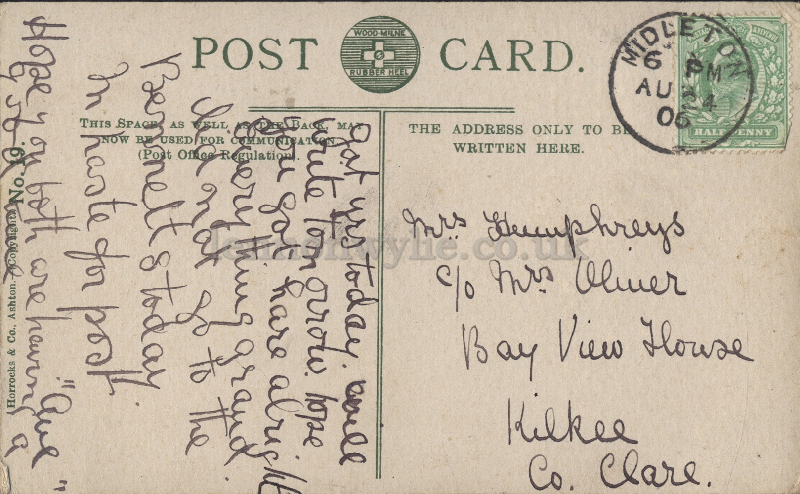 POST CARD.
WOOD-MILNE
RUBBER HEEL
MIDLETON
6 PM
AU 24
06
HALFPENNY
THIS SPACE, AS WELL AS THE BACK, MAY
NOW BE USED FOR COMMUNICATION.
(Post Office Regulation).
THE ADDRESS ONLY TO BE
WRITTEN HERE.
Got yrs today. will
write tomorrow. hope
you got hare alright
Everything grand
did not go to the
Bennetts today
In haste for post
Hope you both are having a
Mrs Humphreys
c/o Mrs Oliver
Bay View House
Kilkee
Co. Clare.
Horrocks & Co., Ashton. (Copyright). No. 19.
lennonwylie.co.uk